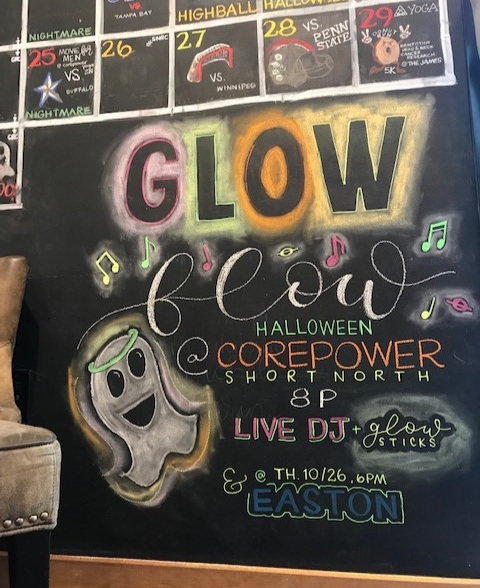 TAMPA BAY
HIGHBALL
NIGHTMARE
25 MOVE
MEN
VS.
BUFFALO
NIGHTMARE
26
27
VS.
WINNIPEG
28 VS.
PENN
STATE
29 YOGA
DONUT
5K
@ THE JAMES
GLOW
flow
HALLOWEEN
@ COREPOWER
SHORT NORTH
8P
LIVE DJ + glow
STICKS
& @ TH. 10/26, 6PM
EASTON